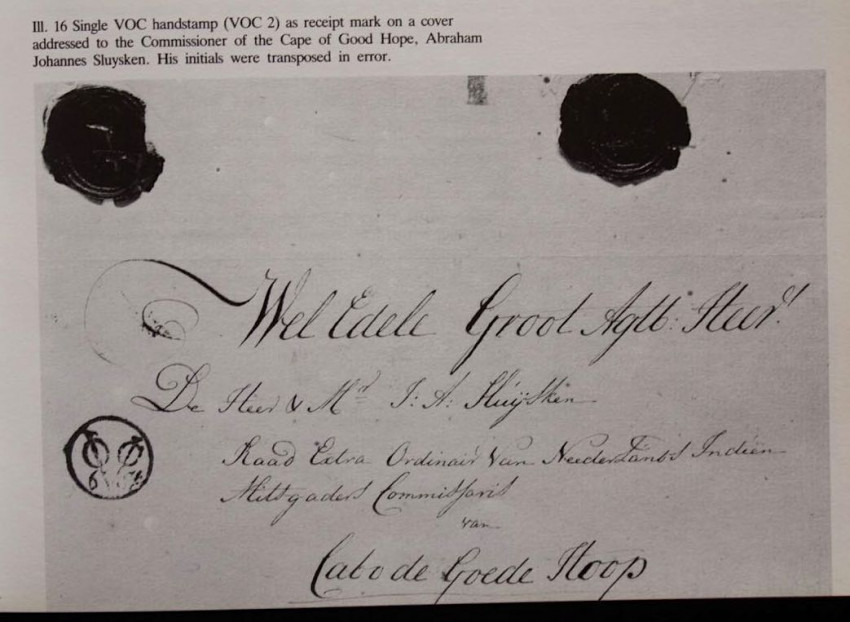 Ill. 16 Single VOC handstamp (VOC 2) as receipt mark on a cover
addressed to the Commissioner of the Cape of Good Hope, Abraham
Johannes Sluysken. His initials were transposed in error.
Wel Edele Groot Agtb: Heer!
De Heer & Mr J: A: Sluÿsken
Raad Extra Ordinair Van Neederlands Indien
Mitsgaders Commissaris
van
Cabo de Goede Hoop